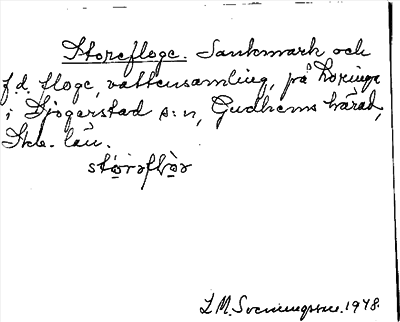 Storefloge. Sankmark och
f.d. floge, vattensamling, på Loringa
i Djogerstad s:n, Gudhems härad,
Skb. län.
L M. Svenungsson. 1978.